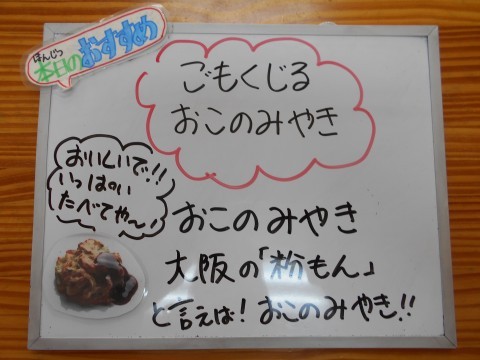 ほんじつ
本日のおすすめ
ごもくじる
おこのみやき
おいしいで!!
いっぱい
たべてや〜!
おこのみやき
大阪の「粉もん」
と言えば!おこのみやき!!